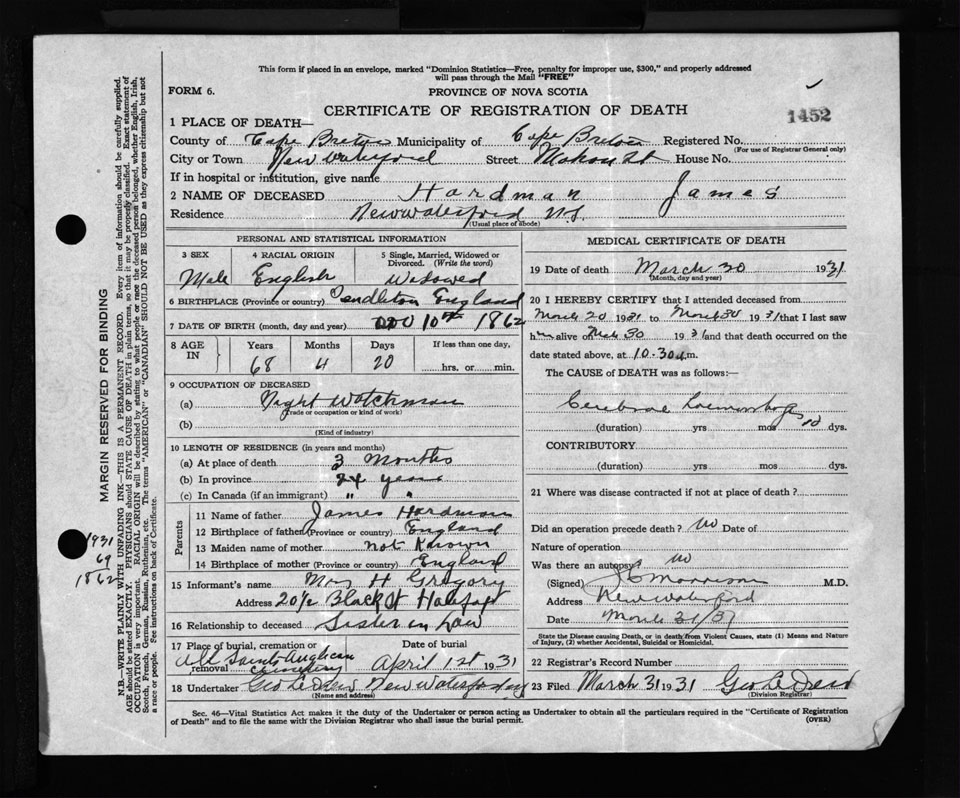 This form if placed in an envelope, marked "Dominion Statistics—Free, penalty for improper use, $300," and properly addressed
will pass through the Mail "FREE"
FORM 6.
PROVINCE OF NOVA SCOTIA
CERTIFICATE OF REGISTRATION OF DEATH
1452
1 PLACE OF DEATH—
County of Cape Breton Municipality of Cape Breton Registered No.
(For use of Registrar General only)
City or Town New Waterford Street Mahon St House No.
If in hospital or institution, give name
2 NAME OF DECEASED Hardman James
Residence New Waterford N.S.
(Usual place of abode)
PERSONAL AND STATISTICAL INFORMATION
3 SEX 4 RACIAL ORIGIN 5 Single, Married, Widowed or
Divorced. (Write the word)
Male English Widowed
6 BIRTHPLACE (Province or country) Pendleton England
7 DATE OF BIRTH (month, day and year) 10th 1862
8 AGE IN Years Months Days If less than one day,
68 4 20 hrs. or min.
9 OCCUPATION OF DECEASED
(a) Night Watchman
(Trade or occupation or kind of work)
(b)
(Kind of industry)
10 LENGTH OF RESIDENCE (in years and months)
(a) At place of death 3 Months
(b) In province 24 years
(c) In Canada (if an immigrant) " "
Parents
11 Name of father James Hardman
12 Birthplace of father (Province or country) England
13 Maiden name of mother not Known
14 Birthplace of mother (Province or country) England
15 Informant's name Mrs H Gregory
Address 20½ Black St Halifax
16 Relationship to deceased Sister in Law
17 Place of burial, cremation or removal Date of burial
All Saints Anglican Cemetery April 1st 1931
18 Undertaker Geo LeDrew New Waterford
(Name and address)
MEDICAL CERTIFICATE OF DEATH
19 Date of death March 30 1931
(Month, day and year)
20 I HEREBY CERTIFY that I attended deceased from
March 20 1931 to March 30 1931 that I last saw
him alive on Mch 30 1931 and that death occurred on the
date stated above, at 10.30 a.m.
The CAUSE of DEATH was as follows:—
Cerebral haemorrhage
(duration) yrs mos 10 dys.
CONTRIBUTORY
(duration) yrs mos dys.
21 Where was disease contracted if not at place of death?
Did an operation precede death? no Date of
Nature of operation
Was there an autopsy no
(Signed) Morrison M.D.
Address New Waterford
Date March 31/31
State the Disease causing Death, or in death from Violent Causes, state (1) Means and Nature
of Injury, (2) whether Accidental, Suicidal or Homicidal.
22 Registrar's Record Number
23 Filed March 31 1931 Geo LeDrew
(Division Registrar)
Sec. 46—Vital Statistics Act makes it the duty of the Undertaker or person acting as Undertaker to obtain all the particulars required in the "Certificate of Registration
of Death" and to file the same with the Division Registrar who shall issue the burial permit.
(OVER)
MARGIN RESERVED FOR BINDING
N.B.—WRITE PLAINLY WITH UNFADING INK—THIS IS A PERMANENT RECORD. Every item of information should be carefully supplied.
AGE should be stated EXACTLY. PHYSICIANS should STATE CAUSE OF DEATH in plain terms, so that it may be properly classified. Exact statement of
OCCUPATION is very important. RACIAL ORIGIN will be described by stating to what people or race the deceased person belonged, whether English, Irish,
Scotch, French, German, Russian, Ruthenian, etc. The terms "AMERICAN" or "CANADIAN" SHOULD NOT BE USED as they express citizenship but not
a race or people. See instructions on back of Certificate.
1931
69
1862